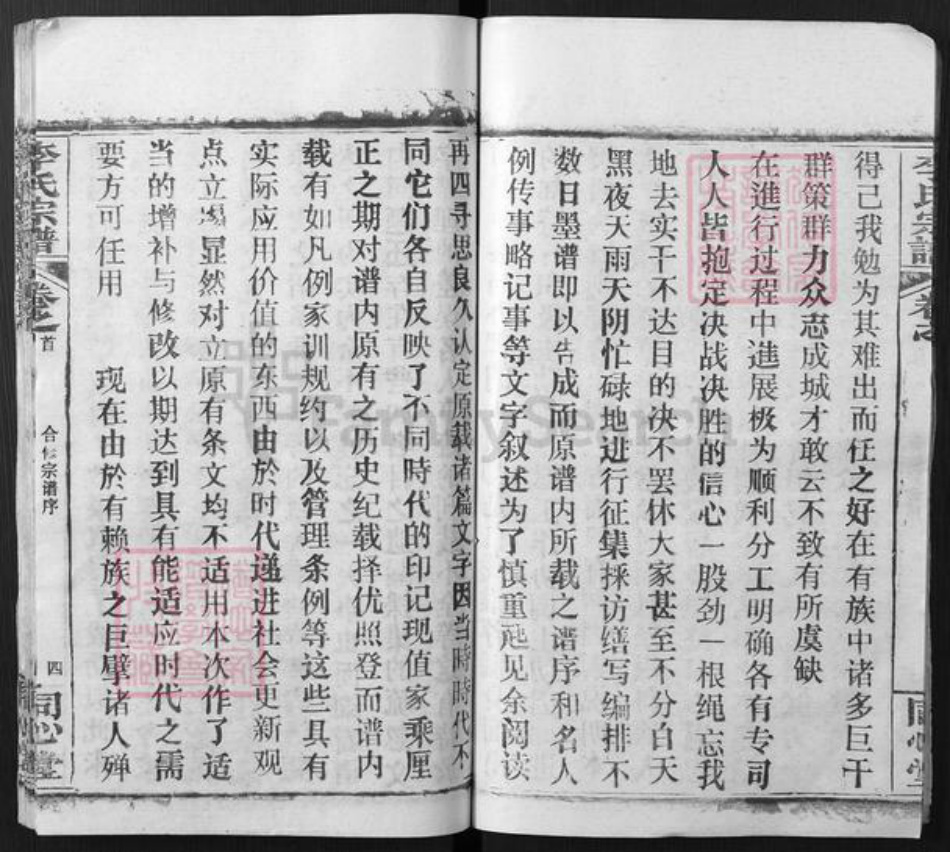 得己我勉为其难出而任之好在有族中诸多巨干
群策群力众志成城才敢云不致有所虞缺
在進行过程中進展极为顺利分工明确各有专司
人人皆抱定决战决胜的信心一股劲一根绳忘我
地去实干不达目的决不罢休大家甚至不分白天
黑夜天雨天阴忙碌地进行征集採访缮写编排不
数日墨谱即以告成而原谱内所载之谱序和名人
例传事略记事等文字叙述为了慎重起见余阅读
再四寻思良久认定原载诸篇文字因当時時代不
同它们各自反映了不同時代的印记现值家乘厘
正之期对谱内原有之历史纪载择优照登而谱内
载有如凡例家训规约以及管理条例等这些具有
实际应用价值的东西由於时代递进社会更新观
点立場显然对立原有条文均不适用本次作了适
当的增补与修改以期达到具有能适应时代之需
要方可任用 现在由於有赖族之巨擘诸人殚
李氏宗譜 卷之首 合修宗谱序 四 同心堂
FamilySearch